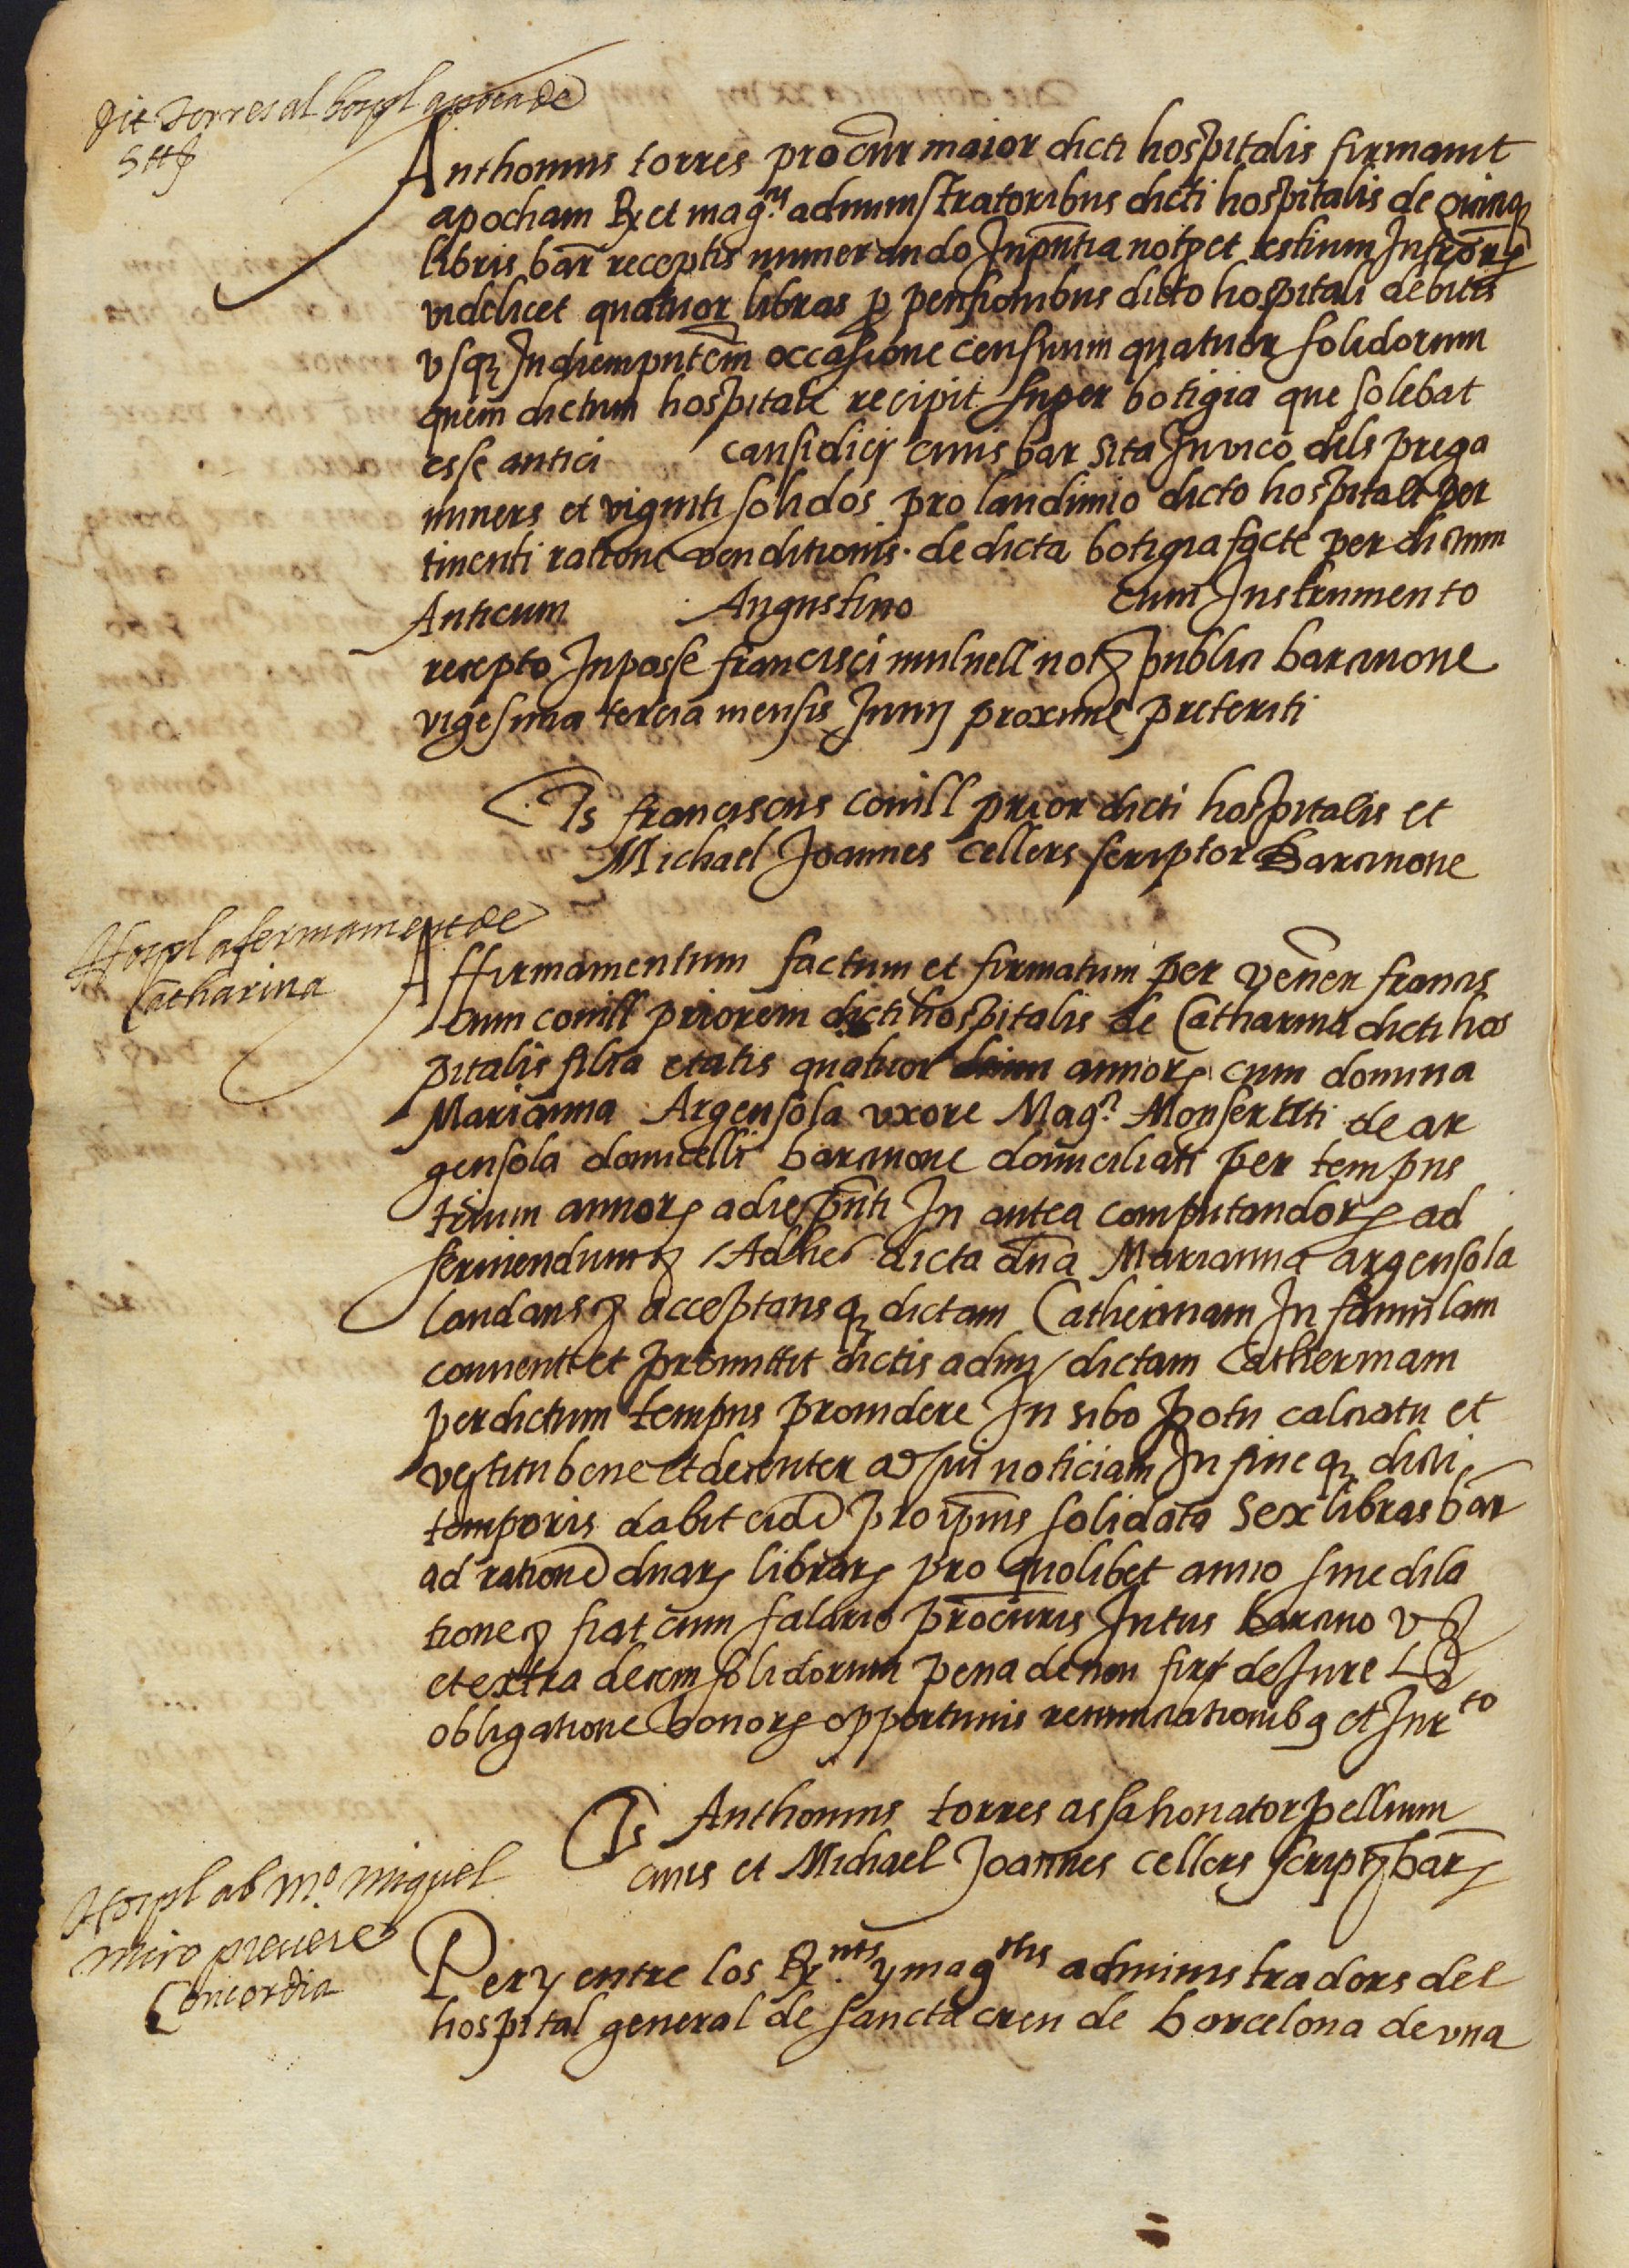 Dit Torres al hospl apocha de
5 ll ß
Anthonius torres procur maior dicti hospitalis firmavit
apocham Rx et mag.cis administratoribus dicti hospitalis de quinq
libris bar receptis numerando In pntia not et testium Infror
videlicet quatuor libras p pensionibus dicto hospitali debitis
vsq In diem pntem occasione censuum quatuor solidorum
quem dictum hospitale recipit super botigia que solebat
esse antici causidici civis bar sita In vico dels prega
miners et viginti solidos pro laudimio dicto hospitali per
tinenti ratione venditionis de dicta botigia facte per dictum
Anticum Augustino cum Instrumento
recepto In posse francisci mulnell not publici barcinone
vigesima tercia mensis Junij proxime preteriti
Ts franciscus conill prior dicti hospitalis et
Michael Joannes cellers scriptor Barcinone
Hospl afermament de
Catharina
Affirmamentum factum et firmatum per vener francis
cum conill priorem dicti hospitalis de Catharina dicti hos
pitalis filia etatis quatuor annor cum domina
Marianna Argensola vxore Mag.ci Monserrati de ar
gensola domicelli barcinone domiciliati per tempus
trium annor a die pnti In antea computandor ad
serviendum Ad hec dicta dna Marianna argensola
laudans acceptansq dictam Catherinam In famulam
convenit et promittit dictis admi dictam Catherinam
per dictum tempus providere In sibo potu calciatu et
vestitu bene et decenter ad sui noticiam In fine q dicti
temporis dabit eide pro ipius solidata sex libras bar
ad ratione duar librar pro quolibet anno sine dila
tione fiat cum salario procuris Intus barcino vß
et extra decem solidorum pena de non firt de Jure Ld
obligatione bonor opportunis renunciationibq et Jur.to
Ts Anthonius torres assahonator pellium
civis et Michael Joannes cellers script bar
Hospl ab m.o miguel
miro prevere
Concordia
Per y entre los Rx.nts y mag.chs administradors del
hospital general de sancta creu de barcelona de vna